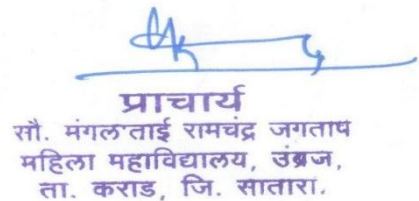 प्राचार्य
सौ. मंगलताई रामचंद्र जगताप
महिला महाविद्यालय, उंब्रज,
ता. कराड, जि. सातारा.